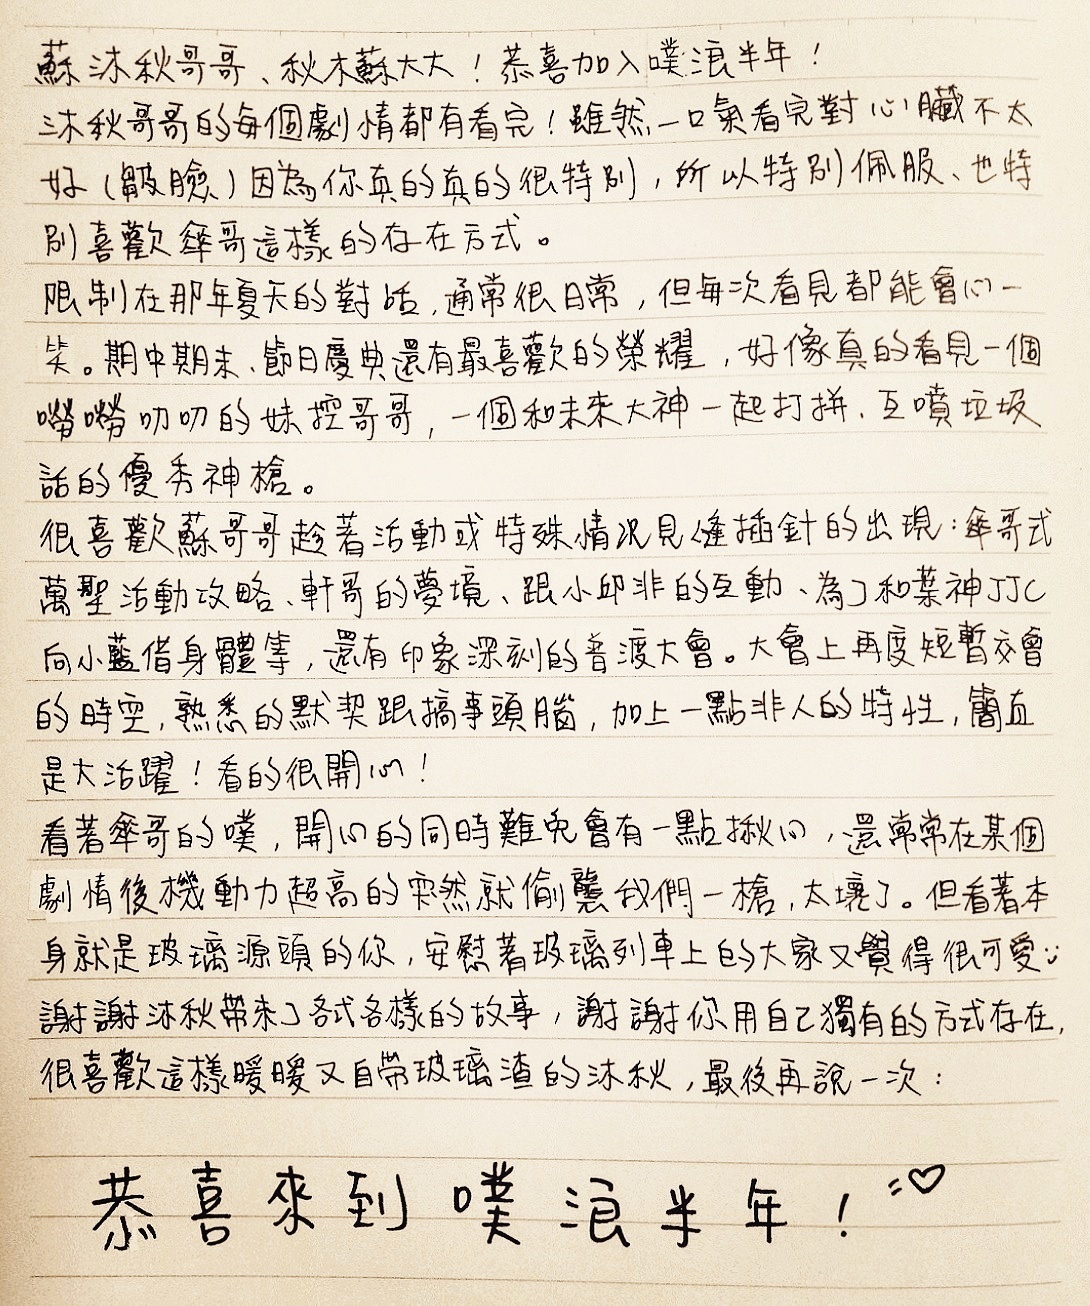 蘇沐秋哥哥、秋木蘇大大！恭喜加入噗浪半年！
沐秋哥哥的每個劇情都有看完！雖然一口氣看完對心臟不太
好（皺臉）因為你真的真的很特別，所以特別佩服、也特
別喜歡傘哥這樣的存在方式。
限制在那年夏天的對話，通常很日常，但每次看見都能會心一
笑。期中期末、節日慶典還有最喜歡的榮耀，好像真的看見一個
嘮嘮叨叨的妹控哥哥，一個和未來大神一起打拼、互噴垃圾
話的優秀神槍。
很喜歡蘇哥哥趁著活動或特殊情況見縫插針的出現：傘哥式
萬聖活動攻略、軒哥的夢境、跟小邱非的互動、為了和葉神JJC
向小藍借身體等，還有印象深刻的普渡大會。大會上再度短暫交會
的時空，熟悉的默契跟搞事頭腦，加上一點非人的特性，簡直
是大活躍！看的很開心！
看著傘哥的噗，開心的同時難免會有一點揪心，還常常在某個
劇情後機動力超高的突然就偷襲我們一槍，太壞了。但看著本
身就是玻璃源頭的你，安慰著玻璃列車上的大家又覺得很可愛:)
謝謝沐秋帶來了各式各樣的故事，謝謝你用自己獨有的方式存在，
很喜歡這樣暖暖又自帶玻璃渣的沐秋，最後再說一次：
恭喜來到噗浪半年！♡